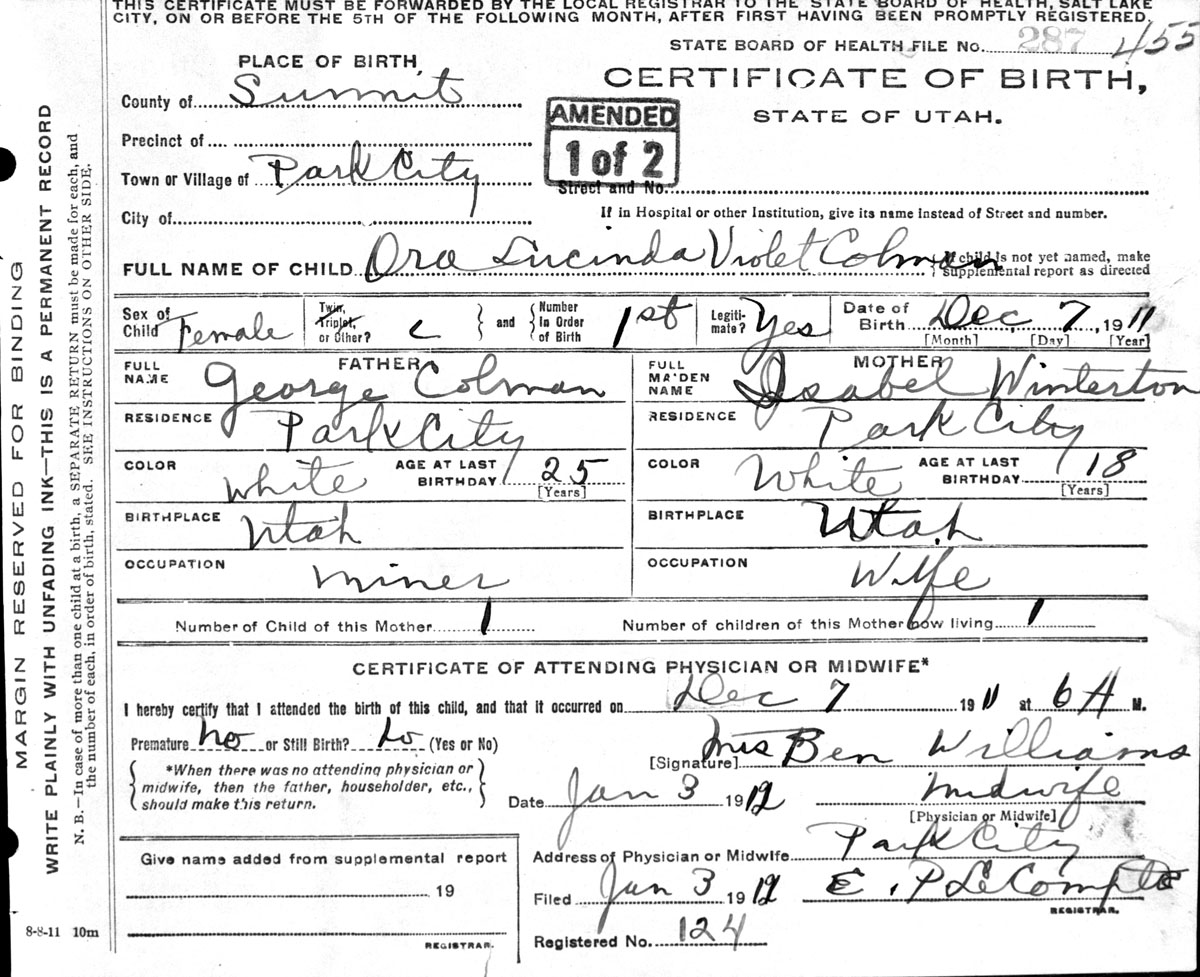 THIS CERTIFICATE MUST BE FORWARDED BY THE LOCAL REGISTRAR TO THE STATE BOARD OF HEALTH, SALT LAKE
CITY, ON OR BEFORE THE 5TH OF THE FOLLOWING MONTH, AFTER FIRST HAVING BEEN PROMPTLY REGISTERED.
STATE BOARD OF HEALTH FILE NO. 287 455
PLACE OF BIRTH,
CERTIFICATE OF BIRTH,
STATE OF UTAH.
County of Summit
AMENDED
1 of 2
Precinct of
Town or Village of Park City
Street and No.
City of
If in Hospital or other Institution, give its name instead of Street and number.
FULL NAME OF CHILD Ora Lucinda Violet Colman
If child is not yet named, make
supplemental report as directed
Sex of Child Female
Twin, Triplet, or Other?
and
Number In Order of Birth 1st
Legitimate? Yes
Date of Birth Dec 7, 1911
[Month] [Day] [Year]
FATHER
FULL NAME George Colman
MOTHER
FULL MAIDEN NAME Isabel Winterton
RESIDENCE Park City
RESIDENCE Park City
COLOR White AGE AT LAST BIRTHDAY 25 [Years]
COLOR White AGE AT LAST BIRTHDAY 18 [Years]
BIRTHPLACE Utah
BIRTHPLACE Utah
OCCUPATION miner
OCCUPATION Wife
Number of Child of this Mother 1
Number of children of this Mother now living 1
CERTIFICATE OF ATTENDING PHYSICIAN OR MIDWIFE*
I hereby certify that I attended the birth of this child, and that it occurred on Dec 7 1911 at 6 A M.
Premature no or Still Birth? (Yes or No)
*When there was no attending physician or
midwife, then the father, householder, etc.,
should make this return.
[Signature] Mrs Ben Williams
Date Jan 3 1912
midwife
[Physician or Midwife]
Give name added from supplemental report
19
REGISTRAR.
Address of Physician or Midwife Park City
Filed Jan 3 1912 E. P. LeCompte
REGISTRAR.
Registered No. 124
8-8-11 10m
MARGIN RESERVED FOR BINDING
WRITE PLAINLY WITH UNFADING INK—THIS IS A PERMANENT RECORD
N. B.—In case of more than one child at a birth, a SEPARATE RETURN must be made for each, and
the number of each, in order of birth, stated. SEE INSTRUCTIONS ON OTHER SIDE.